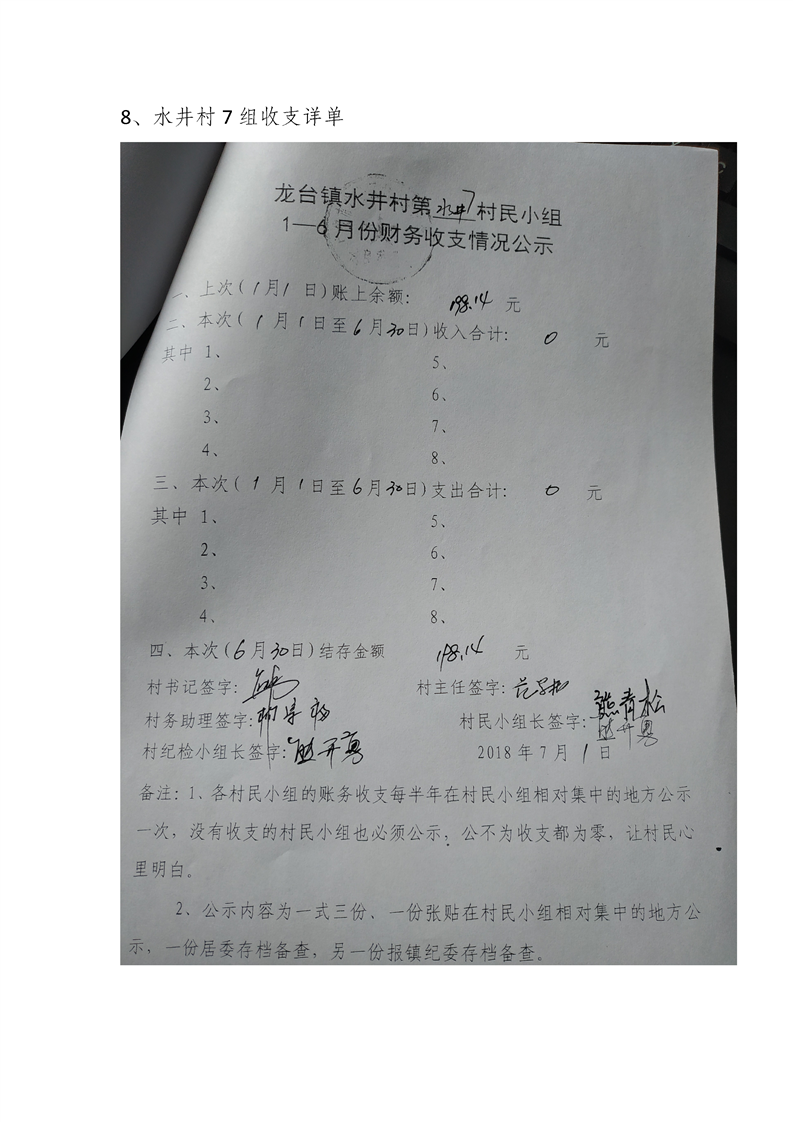 8、水井村 7 组收支详单
龙台镇水井村第水井7村民小组
1—6月份财务收支情况公示
一、上次(1月1日)账上余额: 198.14 元
二、本次(1月1日至6月30日)收入合计: 0 元
其中 1、 5、
2、 6、
3、 7、
4、 8、
三、本次(1月1日至6月30日)支出合计: 0 元
其中 1、 5、
2、 6、
3、 7、
4、 8、
四、本次(6月30日)结存金额 198.14 元
村书记签字: 村主任签字:
村务助理签字: 村民小组长签字: 熊青松
村纪检小组长签字: 2018年7月1日
备注: 1、各村民小组的账务收支每半年在村民小组相对集中的地方公示
一次,没有收支的村民小组也必须公示,公不为收支都为零,让村民心
里明白。
2、公示内容为一式三份、一份张贴在村民小组相对集中的地方公
示,一份居委存档备查,另一份报镇纪委存档备查。